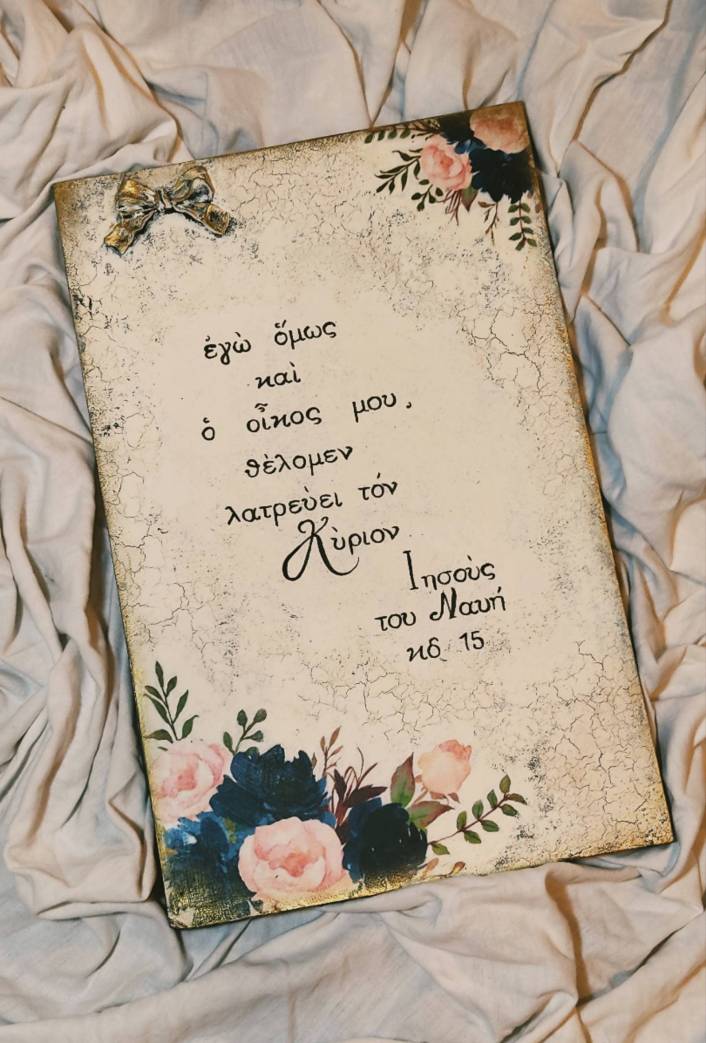 ἐγὼ ὅμως
καὶ
ὁ οἶκος μου,
θὲλομεν
λατρεὺει τόν
Κὺριον
Ιησοὺς
του Ναυή
κδ 15